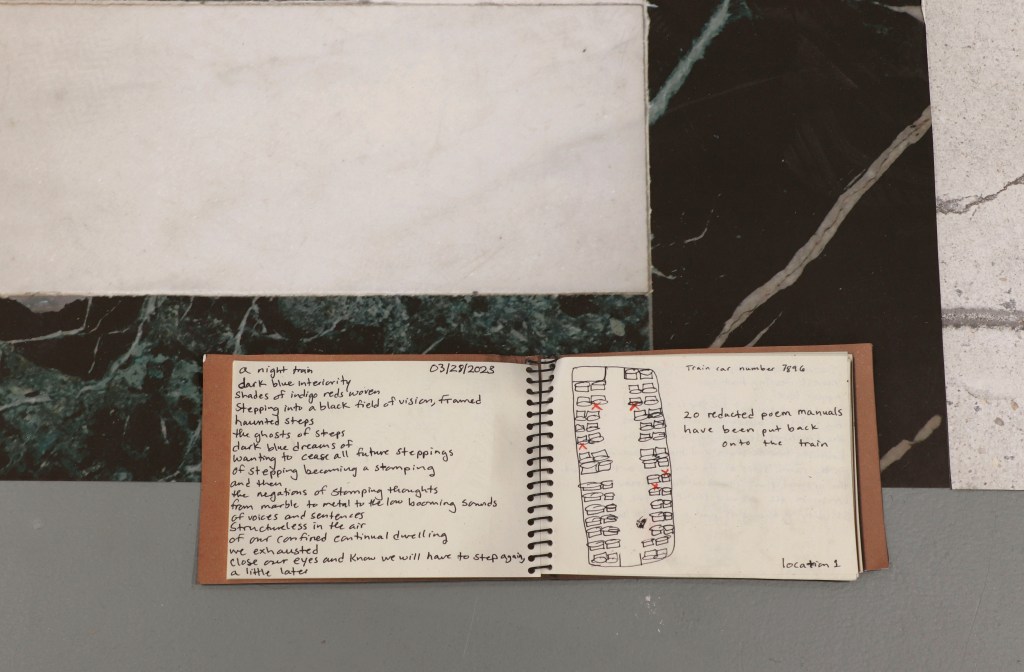 a night train
03/28/2023
dark blue interiority
shades of indigo reds woven
Stepping into a black field of vision, framed
haunted steps
the ghosts of steps
dark blue dreams of
wanting to cease all future steppings
of stepping becoming a stomping
and then
the negations of stomping thoughts
from marble to metal to the low booming sounds
of voices and sentences
Structureless in the air
of our confined continual dwelling
we exhausted
close our eyes and know we will have to step again,
a little later
Train car number 7896
20 redacted poem manuals
have been put back
onto the train
location 1